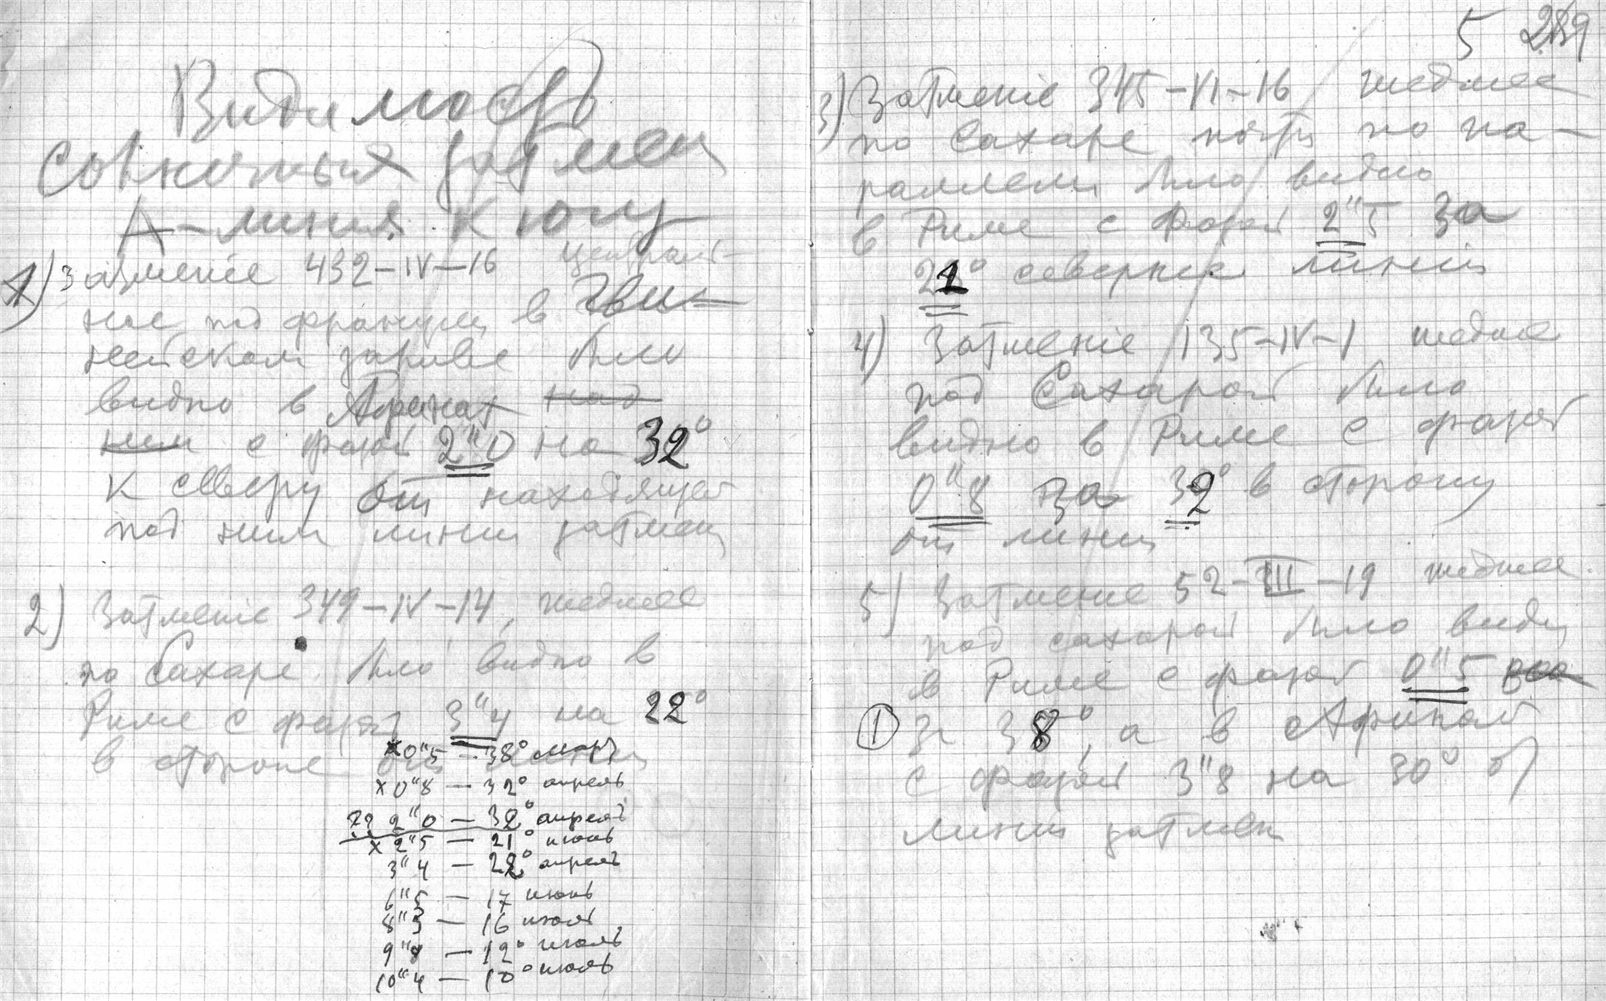 Видимость
солнечных затмен
А-линия к югу
1) Затмение 432-IV-16 централь-
ное под франции в Гви-
нейском заливе было
видно в Афинах над
ним с фазой 2"0 на 32°
к северу от находящейся
под ним линии затмен
2) Затмение 349-IV-14, шедшее
по Сахаре было видно в
Риме с фазой 3"4 на 22°
в стороне от линии
x 0"5 — 38° март
x 0"8 — 32° апрель
?? 2"0 — 32° апрель
x 2"5 — 21° июнь
3"4 — 22° апрель
6"5 — 17 июнь
8"3 — 16 июль
9" — 12° июль
10"4 — 10° июль
5 289
3) Затмение 345-VI-16 шедшее
по Сахаре почти по па-
раллели было видно
в Риме с фазой 2"5 за
21° севернее линии
4) Затмение 135-IV-1 шедшее
под Сахарой было
видно в Риме с фазой
0"8 за 32° в сторону
от линии
5) Затмение 52-III-19 шедшее
под сахарой было видно
в Риме с фазой 0"5
① За 38°, а в Африкой
с фазой 3"8 на 30° от
линии затмен